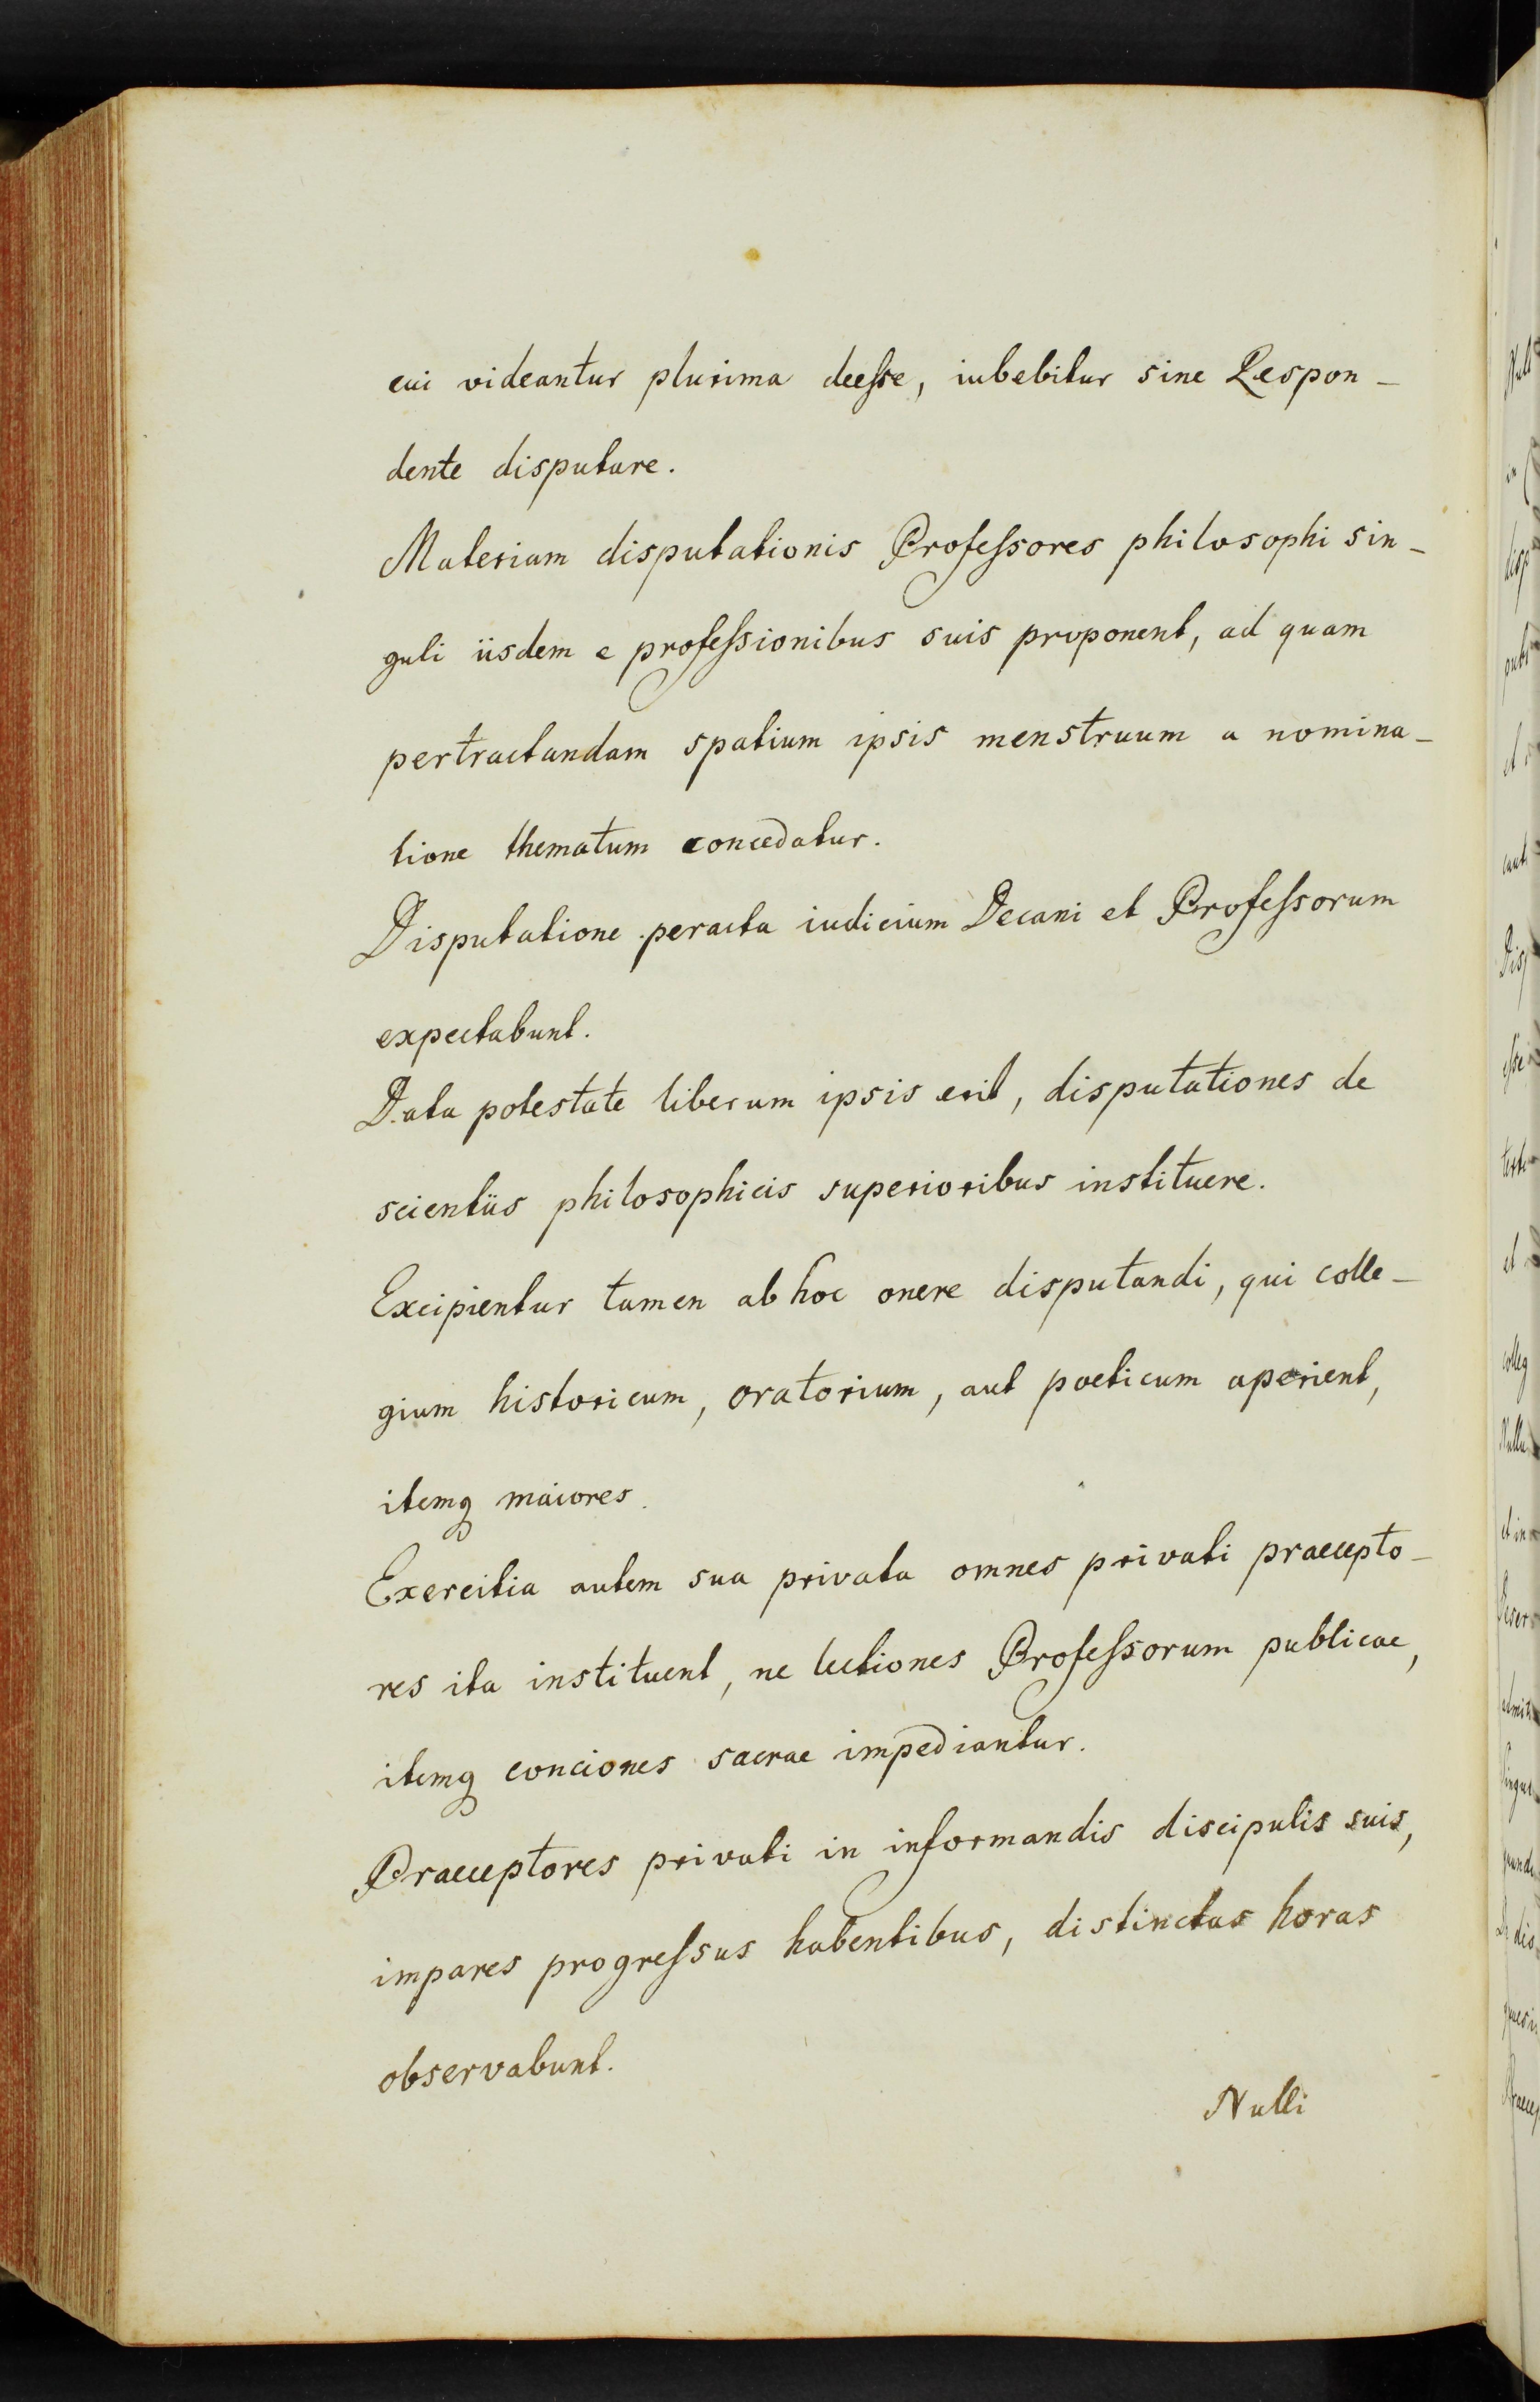 cui videantur plurima deeſse, iubebitur sine Respon-
dente disputare.
Materiam disputationis Profeſsores philosophi sin-
guli iisdem e profeſsionibus suis proponent, ad quam
pertractandam spatium ipsis menstruum a nomina-
tione thematum concedatur.
Disputatione peracta iudicium Decani et Profeſsorum
expectabunt.
Data potestate liberum ipsis erit, disputationes de
scientiis philosophicis superioribus instituere.
Excipientur tamen ab hoc onere disputandi, qui colle-
gium historicum, oratorium, aut poeticum aperient,
itemq maiores.
Exercitia autem sua privata omnes privati praecepto-
res ita instituent, ne lectiones Profeſsorum publicae,
itemq conciones sacrae impediantur.
Praeceptores privati in informandis discipulis suis,
impares progreſsus habentibus, distinctas horas
observabunt.
Nulli